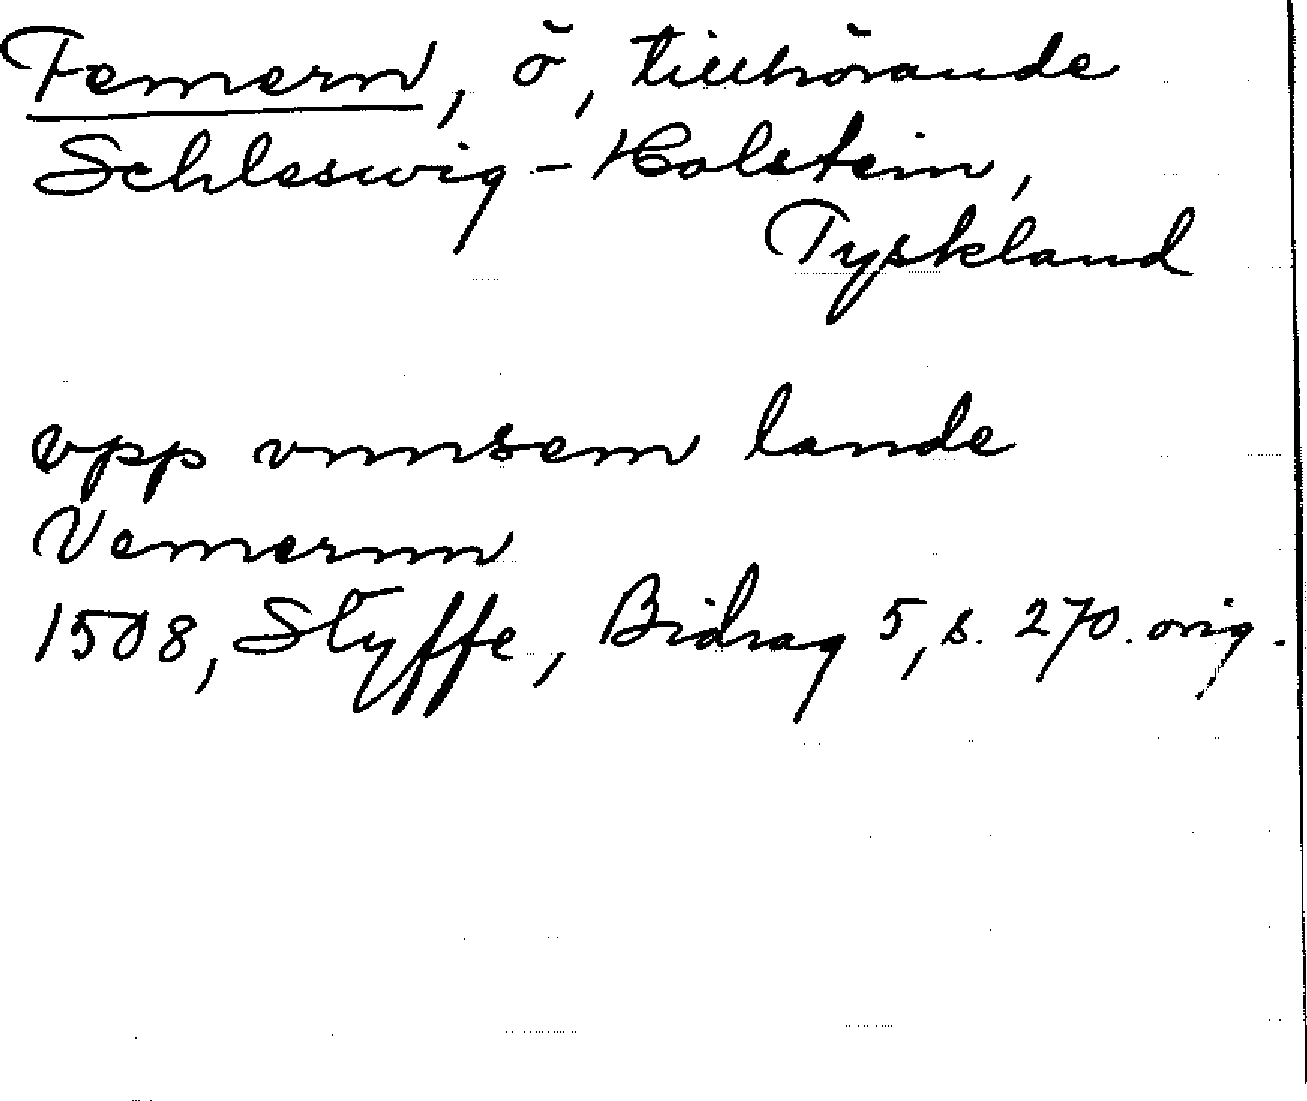 Femern, ö, tillhörande
Schleswig-Holstein,
Tyskland
vpp vnnsem lande
Vemernn
1508, Styffe, Bidrag 5, s. 270. orig.